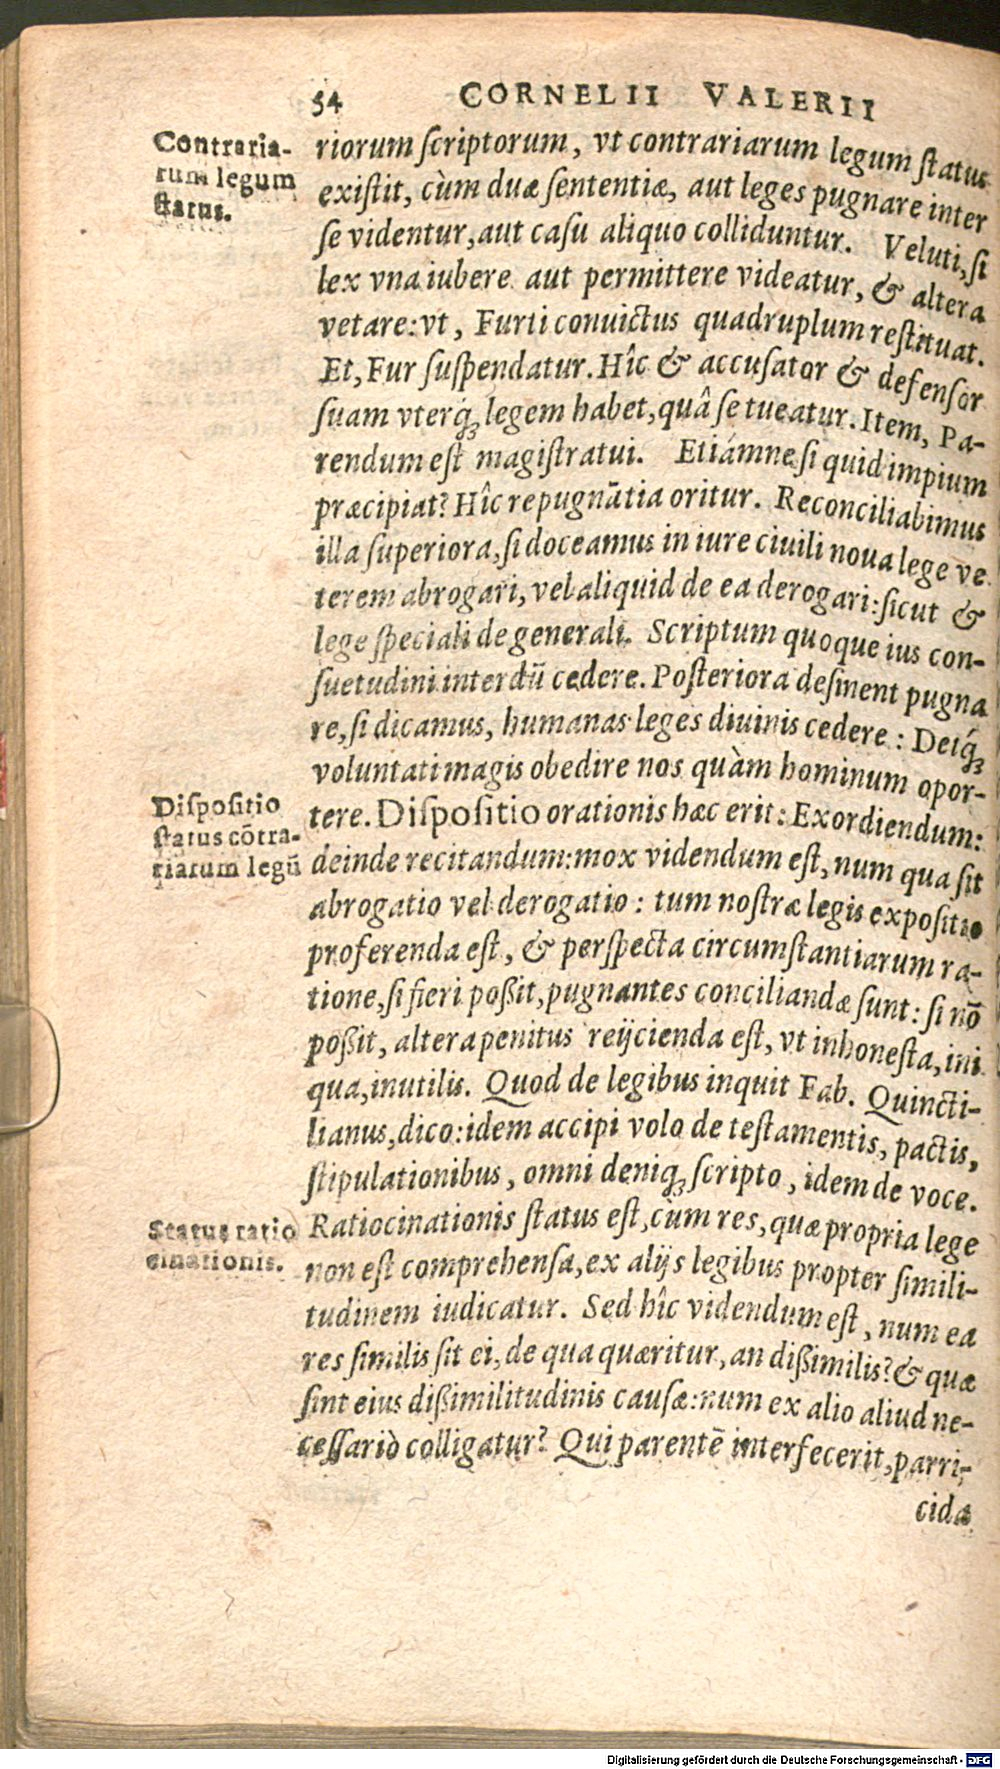 54 CORNELII VALERII
Contraria-
rum legum
status.
riorum scriptorum, vt contrariarum legum status
existit, cùm duæ sententiæ, aut leges pugnare inter
se videntur, aut casu aliquo colliduntur. Veluti, si
lex vna iubere aut permittere videatur, & altera
vetare: vt, Furti conuictus quadruplum restituat.
Et, Fur suspendatur. Hîc & accusator & defensor
suam vterq́ꝫ legem habet, quâ se tueatur. Item, Pa-
rendum est magistratui. Etiámne si quid impium
præcipiat? Hîc repugnātia oritur. Reconciliabimus
illa superiora, si doceamus in iure ciuili noua lege ve
terem abrogari, vel aliquid de ea derogari: sicut &
lege speciali de generali. Scriptum quoque ius con-
suetudini interdū cedere. Posteriora desinent pugna
re, si dicamus, humanas leges diuinis cedere: Deiq́ꝫ
voluntati magis obedire nos quàm hominum opor-
Dispositio
status cōtra-
riarum legū
tere. Dispositio orationis hæc erit: Exordiendum:
deinde recitandum: mox videndum est, num qua sit
abrogatio vel derogatio: tum nostræ legis expositio
proferenda est, & perspecta circumstantiarum ra-
tione, si fieri poßit, pugnantes conciliandæ sunt: si nō
poßit, altera penitus reijcienda est, vt inhonesta, ini
qua, inutilis. Quod de legibus inquit Fab. Quincti-
lianus, dico: idem accipi volo de testamentis, pactis,
stipulationibus, omni deniqꝫ scripto, idem de voce.
Status ratio
cinationis.
Ratiocinationis status est, cùm res, quæ propria lege
non est comprehensa, ex alijs legibus propter simili-
tudinem iudicatur. Sed hîc videndum est, num ea
res similis sit ei, de qua quæritur, an dißimilis? & quæ
sint eius dißimilitudinis causæ: num ex alio aliud ne-
cessariò colligatur? Qui parentē interfecerit, parri-
cida
Digitalisierung gefördert durch die Deutsche Forschungsgemeinschaft - DFG